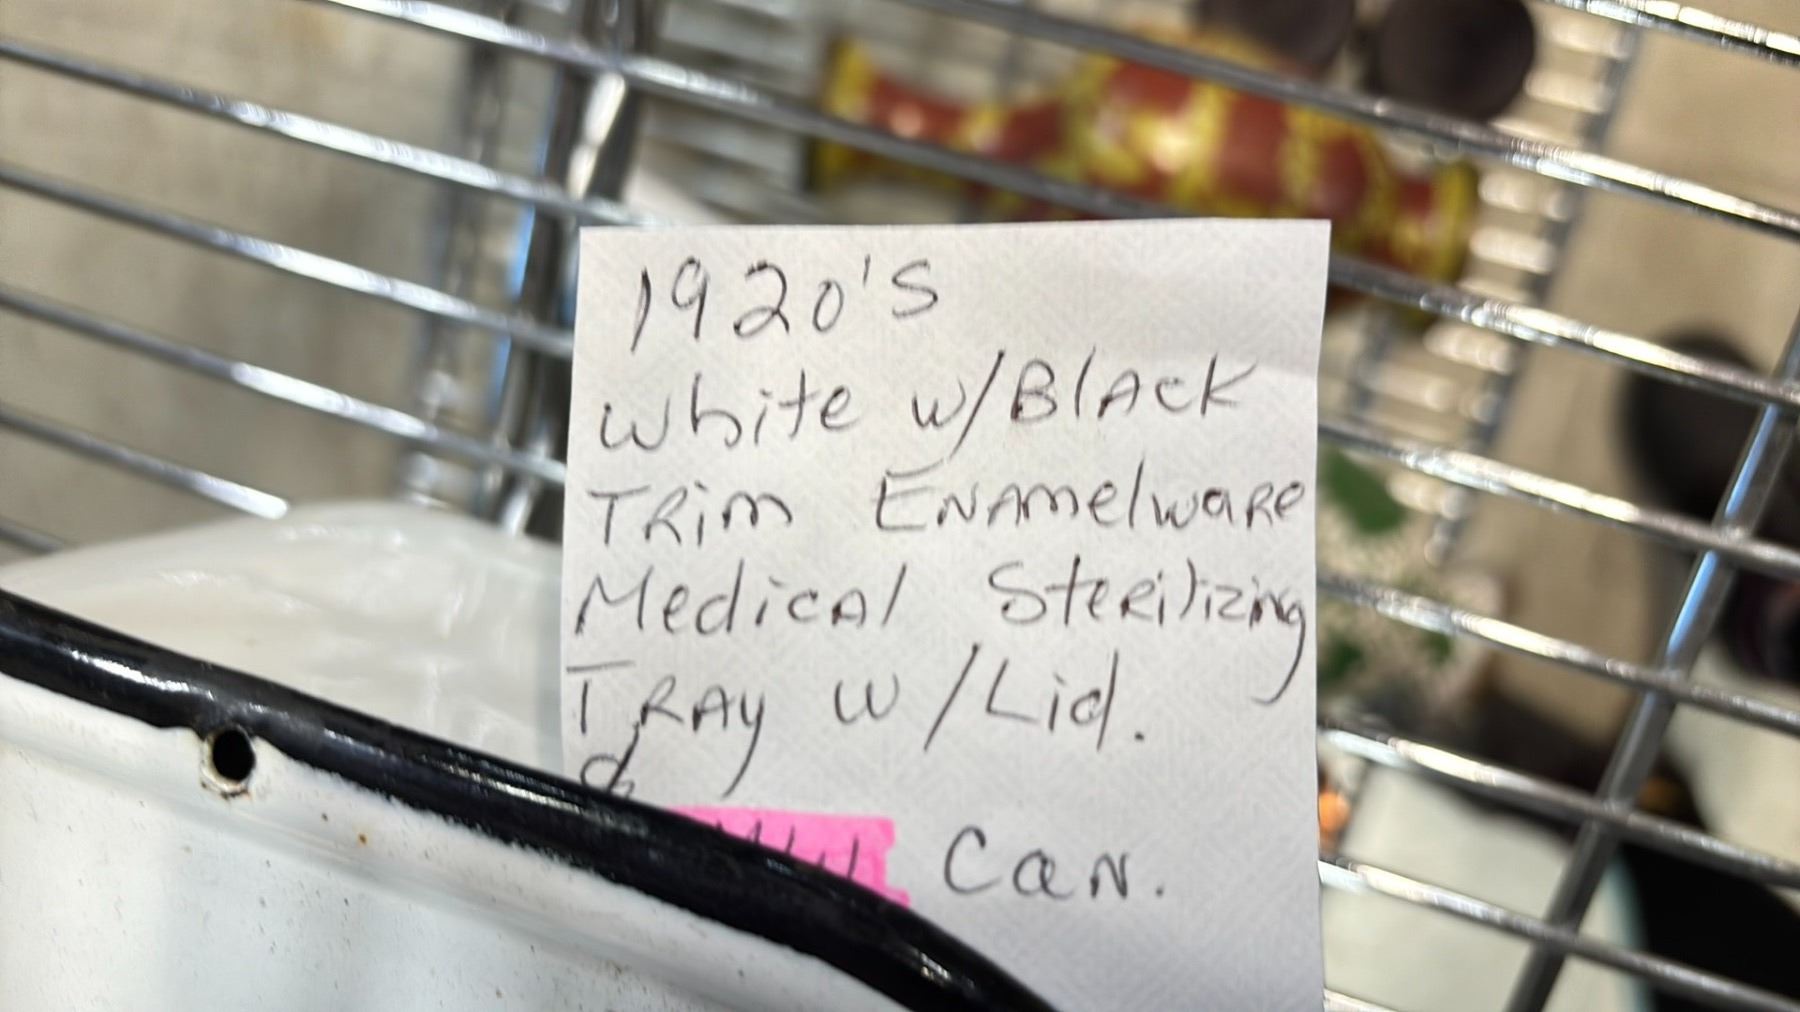 1920's
White w/Black
Trim Enamelware
Medical Sterilizing
Tray w/Lid.
&
Can.